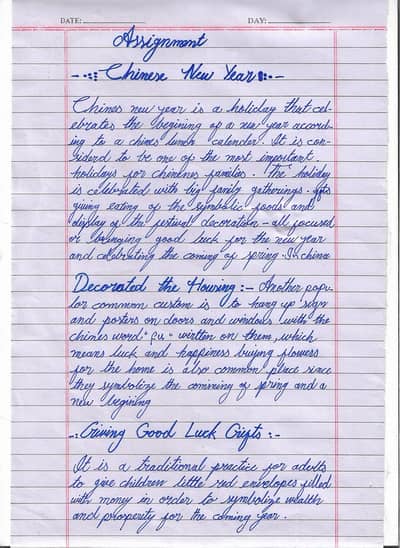 DATE: DAY:
Assignment
Chinese New Year
Chines new year is a holiday that cel-
ebrates the begining of a new year accord-
ing to a chines lunch calender. It is con-
sidered to be one of the most important
holidays for chinenes families. The holiday
is celebrated with big family gatherings. gifts
giving eating of the symbolic foods and
display of the festival decoration - all focused
or bringing good luck for the new year
and celebrating the coming of spring. In china
Decorated the Housing :- Another popu-
lar common custom is to hang up sign
and posters on doors and windows with the
chines word " fu " wirtten on them, which
means luck and happiness buying flowers
for the home is also common place since
they symbolize the comming of pring and a
new begining
-: Giving Good Luck Gifts :-
It is a traditional practice for adults
to give children little red envelopes filled
with money in order to symbolize wealth
and prosperity for the coming year.